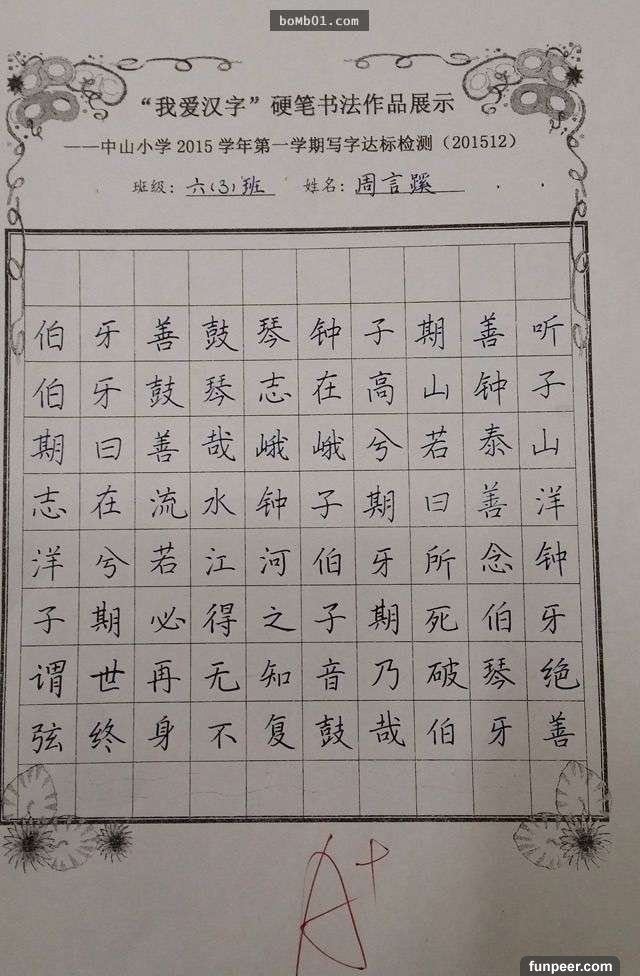 bomb01.com
“我爱汉字”硬笔书法作品展示
——中山小学2015学年第一学期写字达标检测（201512）
班级：六(3)班 姓名：周言蹊
伯牙善鼓琴钟子期善听
伯牙鼓琴志在高山钟子
期曰善哉峨峨兮若泰山
志在流水钟子期曰善洋
洋兮若江河伯牙所念钟
子期必得之子期死伯牙
谓世再无知音乃破琴绝
弦终身不复鼓哉伯牙善
A+
funpeer.com